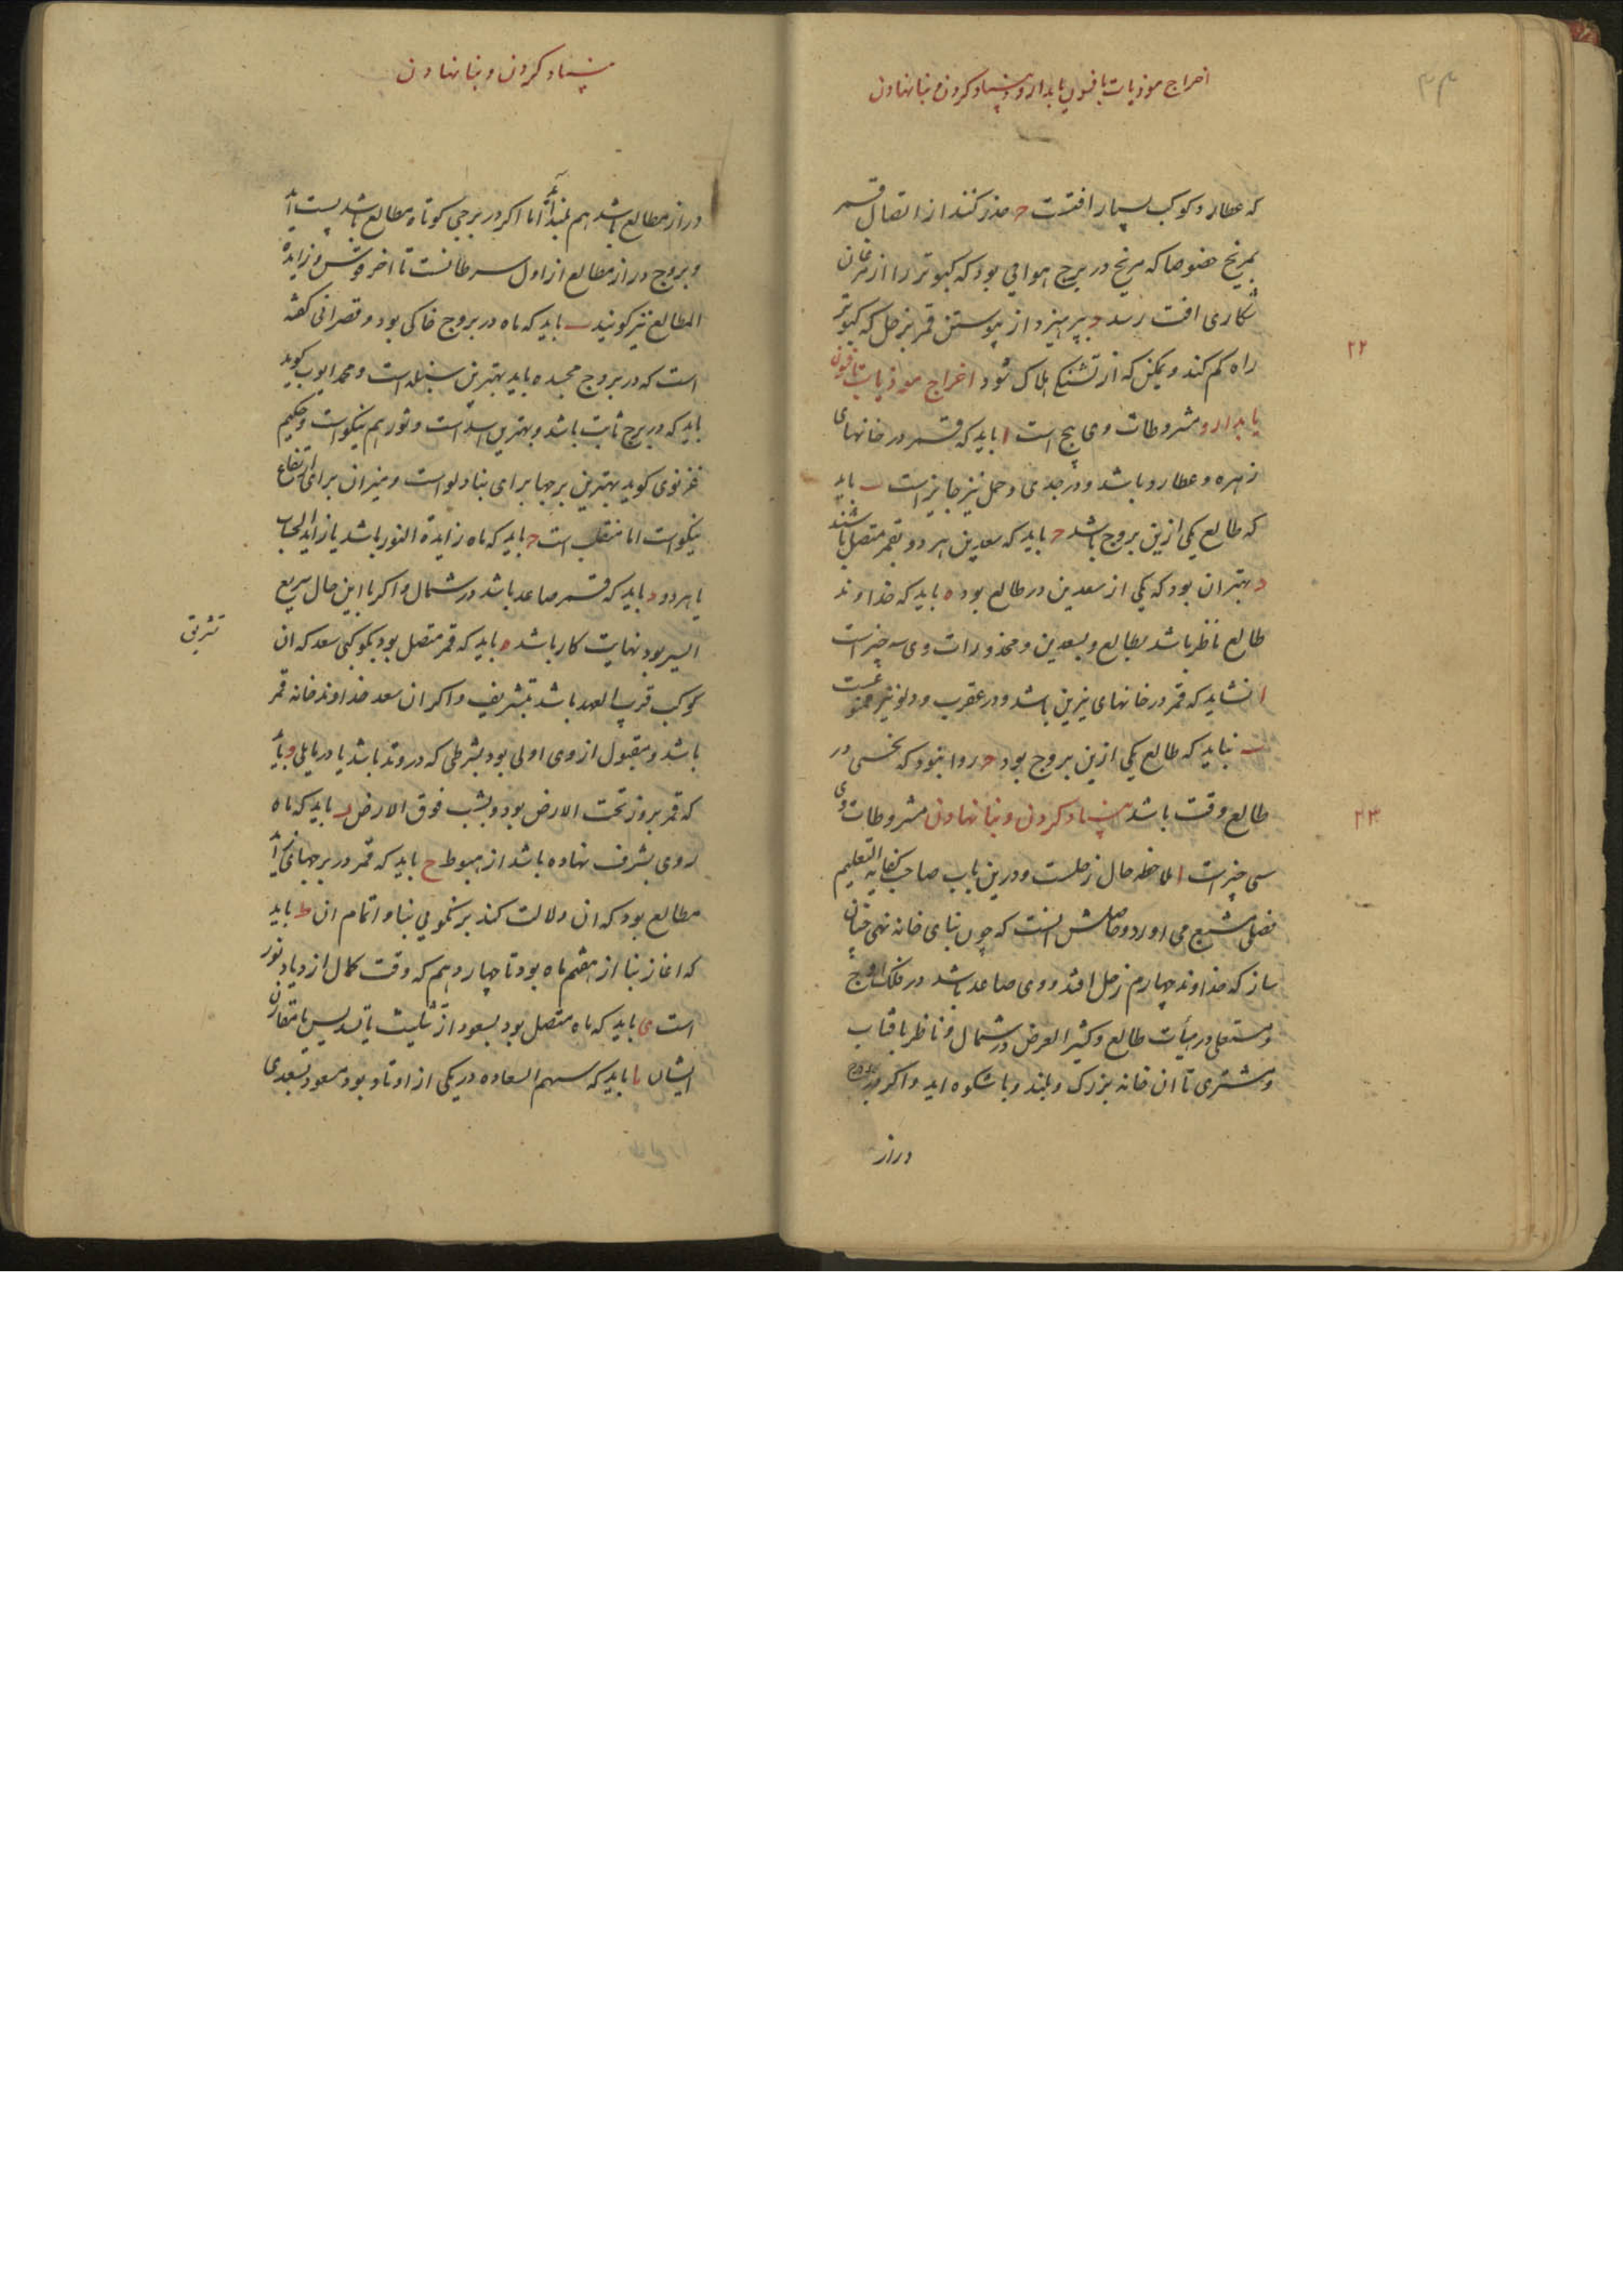 اخراج موذیات بافسون یا بدارو و بنیاد کردن و بنا نهادن
۳۴
که عطارد کوکب بسیار افتست ح حذر کنند از اتصال قمر
بمریخ خصوصا که مریخ در برج هوایی بود که کبوتر را از مرغان
شکاری افت رسد د بپرهیزد از پیوستن قمر بزحل که کبوتر
راه کم کند و یمکن که از تشنکی هلاک شود اخراج موذیات بافسون
۲۲
یا بدارو مشروطات وی پنج است ا باید که قمر در خانهای
زهره و عطارد باشد و در جدی و حمل نیز جایز است ب باید
که طالع یکی ازین بروج باشد ح باید که سعدین هر دو بقمر متصل باشند
د بهتر ان بود که یکی از سعدین در طالع بود ه باید که خداوند
طالع ناظر باشد بطالع و بسعدین و محذورات وی سه چیز است
ا نشاید که قمر در خانهای نیرین باشد و در عقرب و دلو نیز ممنوعست
ب نباید که طالع یکی ازین بروج بود ح روا نبود که نحسی در
طالع وقت باشد بنیاد کردن و بنا نهادن مشروطات وی
۲۳
سی چیز است ا ملاحظه حال زحلست و درین باب صاحب کفایه التعلیم
فصلی مشبع می اورد و حاصلش انست که چون بنای خانه نهی چنان
ساز که خداوند چهارم زحل افتد و وی صاعد باشد در فلک اوج
و مستعلی در هیأت طالع و کثیر العرض در شمال و ناظر بافتاب
و مشتری تا ان خانه بزرک و بلند و باشکوه اید و اکر در برج
دراز
بنیاد کردن و بنا نهادن
دراز مطالع باشد هم بلند آید اما اکر در برجی کوتاه مطالع باشد پست آید
و بروج دراز مطالع از اول سرطانست تا اخر قوس و زایدة
المطالع نیز کویند ب باید که ماه در بروج خاکی بود و قصرانی کفته
است که در بروج مجسده باید بهترین سنبله است و محمد ایوب کوید
باید که در برج ثابت باشد و بهترین اسد است و ثور هم نیکو است و حکیم
غزنوی کوید بهترین برجها برای بنا دلو است و میزان برای ارتفاع
نیکو است اما منقلب است ح باید که ماه زایدة النور باشد یا زاید الحساب
یا هر دو د باید که قمر صاعد باشد در شمال و اکر با این حال سریع
السیر بود نهایت کار باشد ه باید که قمر متصل بود بکوکبی سعد که ان
تشریق
کوکب قریب العهد باشد بتشریف و اکر ان سعد خداوند خانه قمر
باشد و مقبول از وی اولی بود بشرطی که در وتد باشد یا در مایلی و باید
که قمر بروز تحت الارض بود و بشب فوق الارض ز باید که ماه
روی بشرف نهاده باشد از هبوط ح باید که قمر در برجهای زاید
مطالع بود که ان دلالت کند بر نکویی بنا و اتمام ان ط باید
که اغاز بنا از هفتم ماه بود تا چهاردهم که وقت کمال ازدیاد نور
است ی باید که ماه متصل بود بسعود از تثلیث یا تسدیس یا مقارن
ایشان یا باید که سهم السعاده در یکی از اوتاد بود مسعود بسعدی